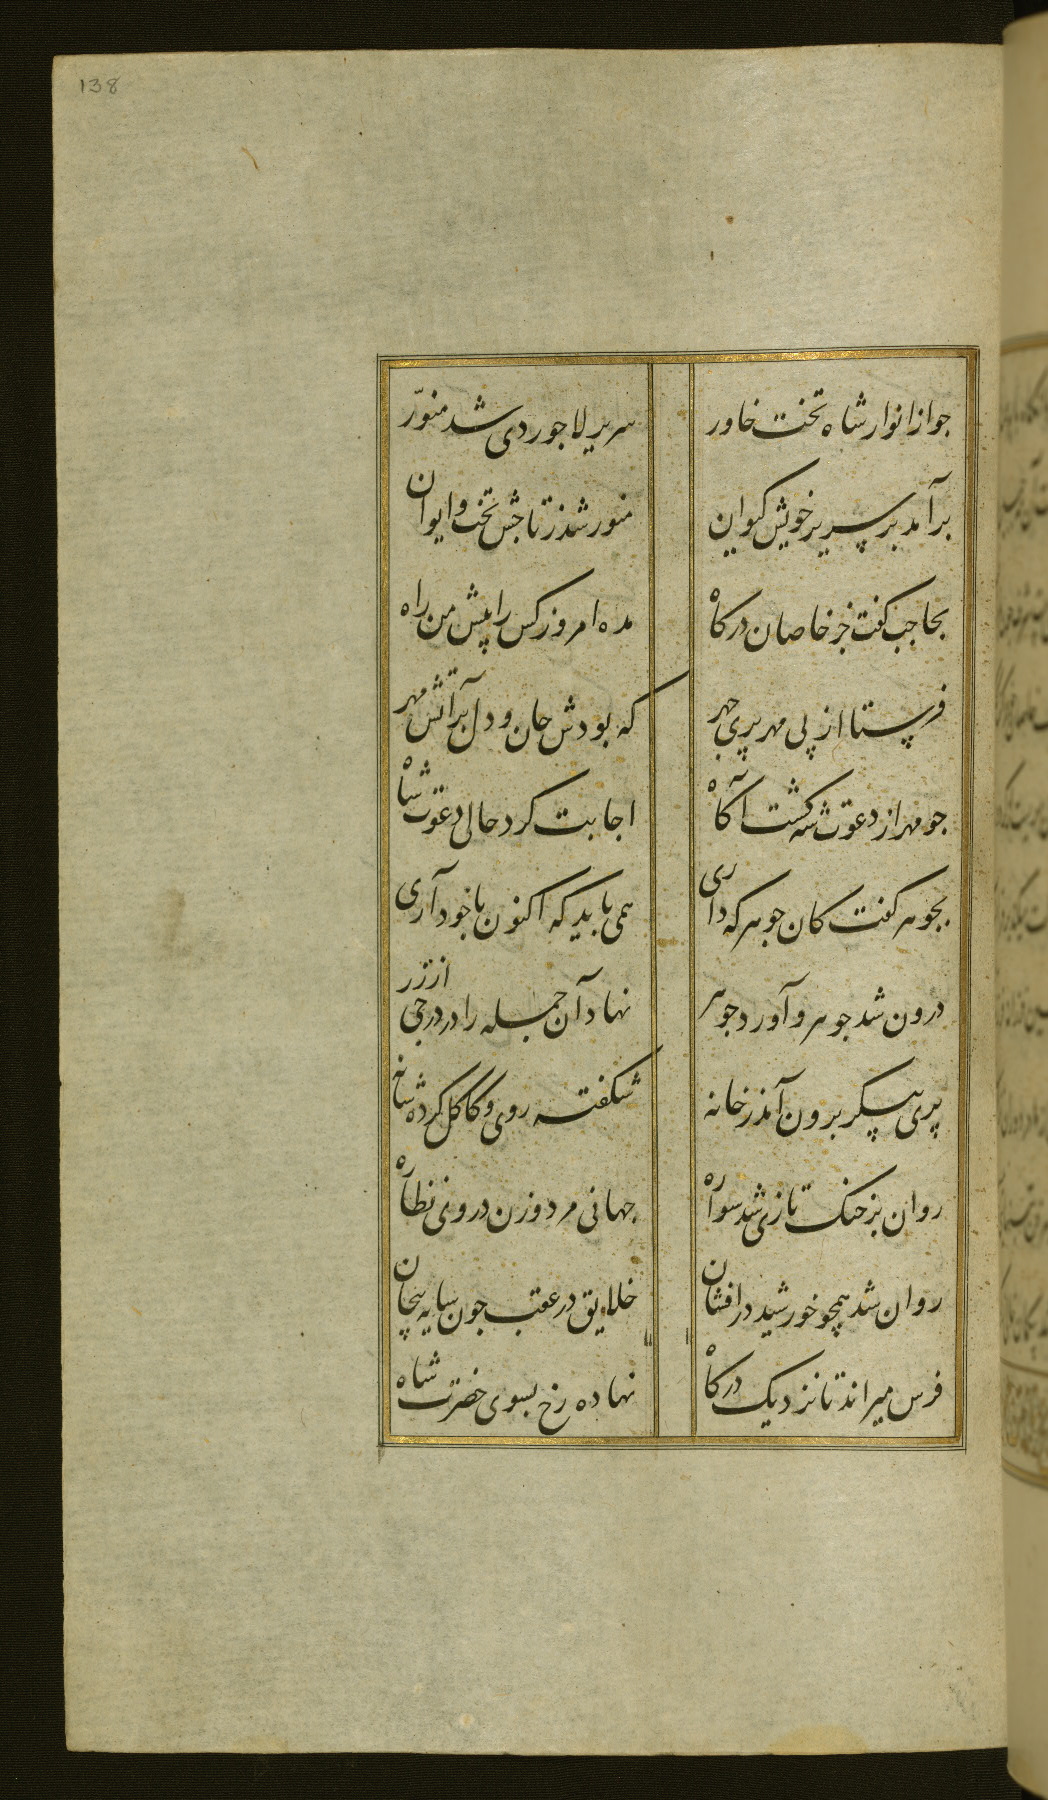 138
جو از انوار شاه تخت خاور سریر لاجوردی شد منوّر
برآمد بر سریر خویش کیوان منور شد ز تاجش تخت و ایوان
بحاجب کفت جز خاصان درکاه مده امروز کس را پیش من راه
فرستاد از پی مهر پری جهر که بودش جان و دل بر آتش مهر
جو مهر از دعوت شه کشت آکاه اجابت کرد حالی دعوت شاه
بجوهر کفت کان جوهر که داری همی باید که اکنون با خود آری
درون شد جوهر و آورد جوهر نهاد آن جمله را در درجی از زر
پری پیکر برون آمد ز خانه شکفته روی و کاکل کرده شانه
روان بر خنک تازی شد سواره جهانی مرد و زن در وی نظاره
روان شد همجو خورشید درافشان خلایق در عقب جون سایه پیچان
فرس میراند تا نزدیک درکاه نهاده رخ بسوی حضرت شاه